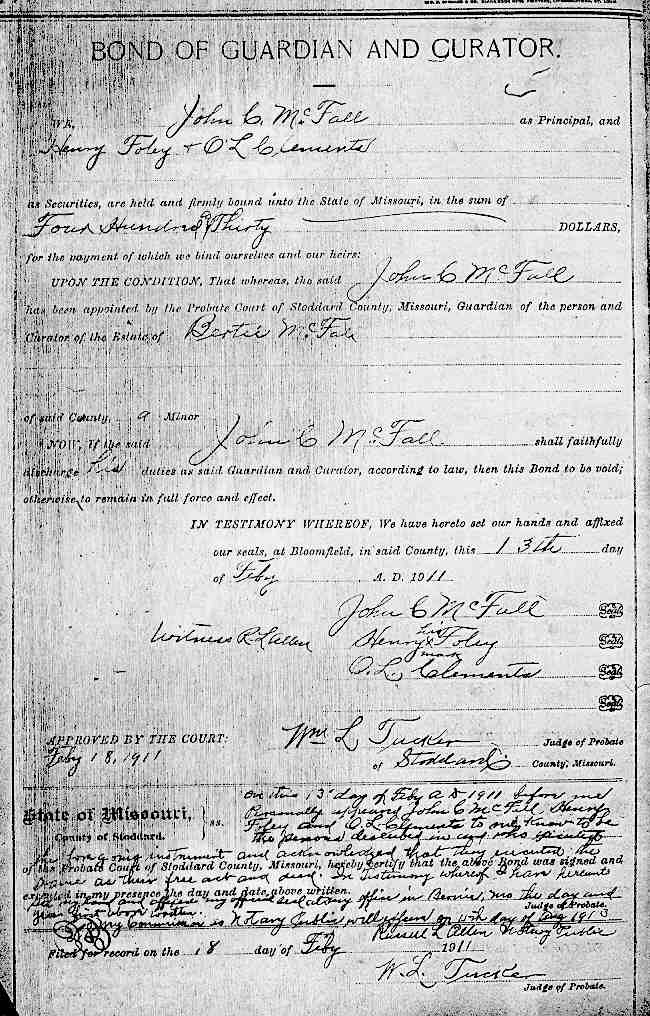 BOND OF GUARDIAN AND CURATOR.
WE, John C. McFall as Principal, and
Henry Foley + O L Clements
as Securities, are held and firmly bound unto the State of Missouri, in the sum of
Four Hundred & Thirty DOLLARS,
for the payment of which we bind ourselves and our heirs:
UPON THE CONDITION, That whereas, the said John C McFall
has been appointed by the Probate Court of Stoddard County, Missouri, Guardian of the person and
Curator of the Estate of Bertie McFall
of said County, a Minor
NOW, If the said John C McFall shall faithfully
discharge his duties as said Guardian and Curator, according to law, then this Bond to be void;
otherwise, to remain in full force and effect.
IN TESTIMONY WHEREOF, We have hereto set our hands and affixed
our seals, at Bloomfield, in said County, this 13th day
of Feby A. D. 1911
John C McFall Seal
Witness R L Allen Henry his x mark Foley Seal
O. L. Clements Seal
Seal
APPROVED BY THE COURT: Wm L Tucker Judge of Probate
Feby 18, 1911 of Stoddard County, Missouri.
On this 13 day of Feby A D 1911 before me
State of Missouri, ss. Personally appeared John C McFall, Henry
Foley and O L Clements to me known to be
County of Stoddard. the persons described in and who executed
the foregoing instrument and acknowledged that they executed the
of the Probate Court of Stoddard County, Missouri, hereby certify that the above Bond was signed and
same as their free act and deed. In Testimony whereof I have hereunto
executed in my presence the day and date above written.
and affixed my official seal at my office in Bernie, Mo the day and
Judge of Probate.
year first above written.
My Commission as Notary Public will expire on 11th day of Aug 1913
Russell L Allen Notary Public
Filed for record on the 18 day of Feby 1911
W. L. Tucker
Judge of Probate.